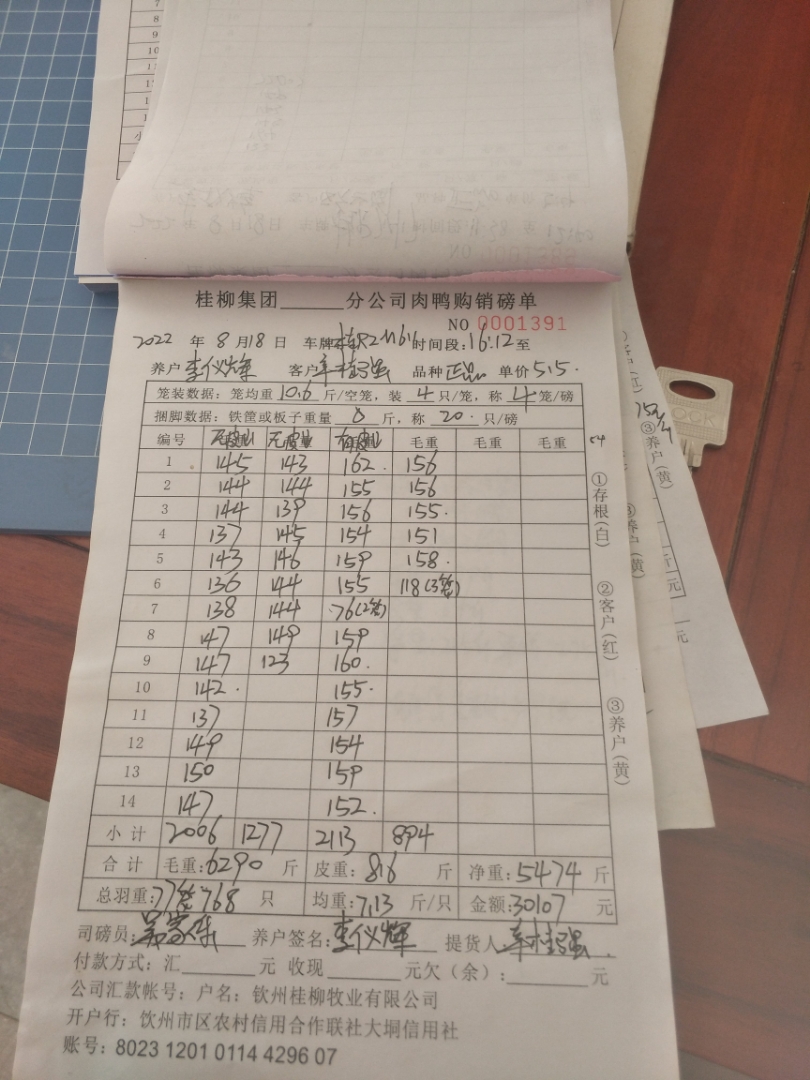 桂柳集团______分公司肉鸭购销磅单
NO 0001391
2022 年 8 月 18 日 车牌 时间段:16:12至
养户 李仪辉 客户 品种 正品 单价 5.5.
笼装数据: 笼均重 10.6 斤/空笼, 装 4 只/笼, 称 4 笼/磅
捆脚数据: 铁筐或板子重量 8 斤, 称 20 只/磅
编号 无皮 无皮 有皮 毛重 毛重 毛重 54
1 145 143 162 156
2 144 144 155 156
3 144 139 156 155.
4 137 145 154 151
5 143 146 159 158.
6 136 144 155 118(3笼)
7 138 144 76(2笼)
8 147 149 159
9 147 123 160.
10 142. 155.
11 137 157
12 149 154
13 150 159
14 147 152.
小计 2006 1277 2113 894
合计 毛重:6290 斤 皮重:816 斤 净重:5474 斤
总羽重:77笼 768 只 均重:7.13 斤/只 金额:30107 元
司磅员: 养户签名: 李仪辉 提货人
付款方式: 汇______元 收现______元欠(余):______元
公司汇款帐号: 户名: 钦州桂柳牧业有限公司
开户行: 钦州市区农村信用合作联社大垌信用社
账号: 8023 1201 0114 4296 07
①存根(白) ②客户(红) ③养户(黄)
③养户(黄)
养户(黄)
元
元